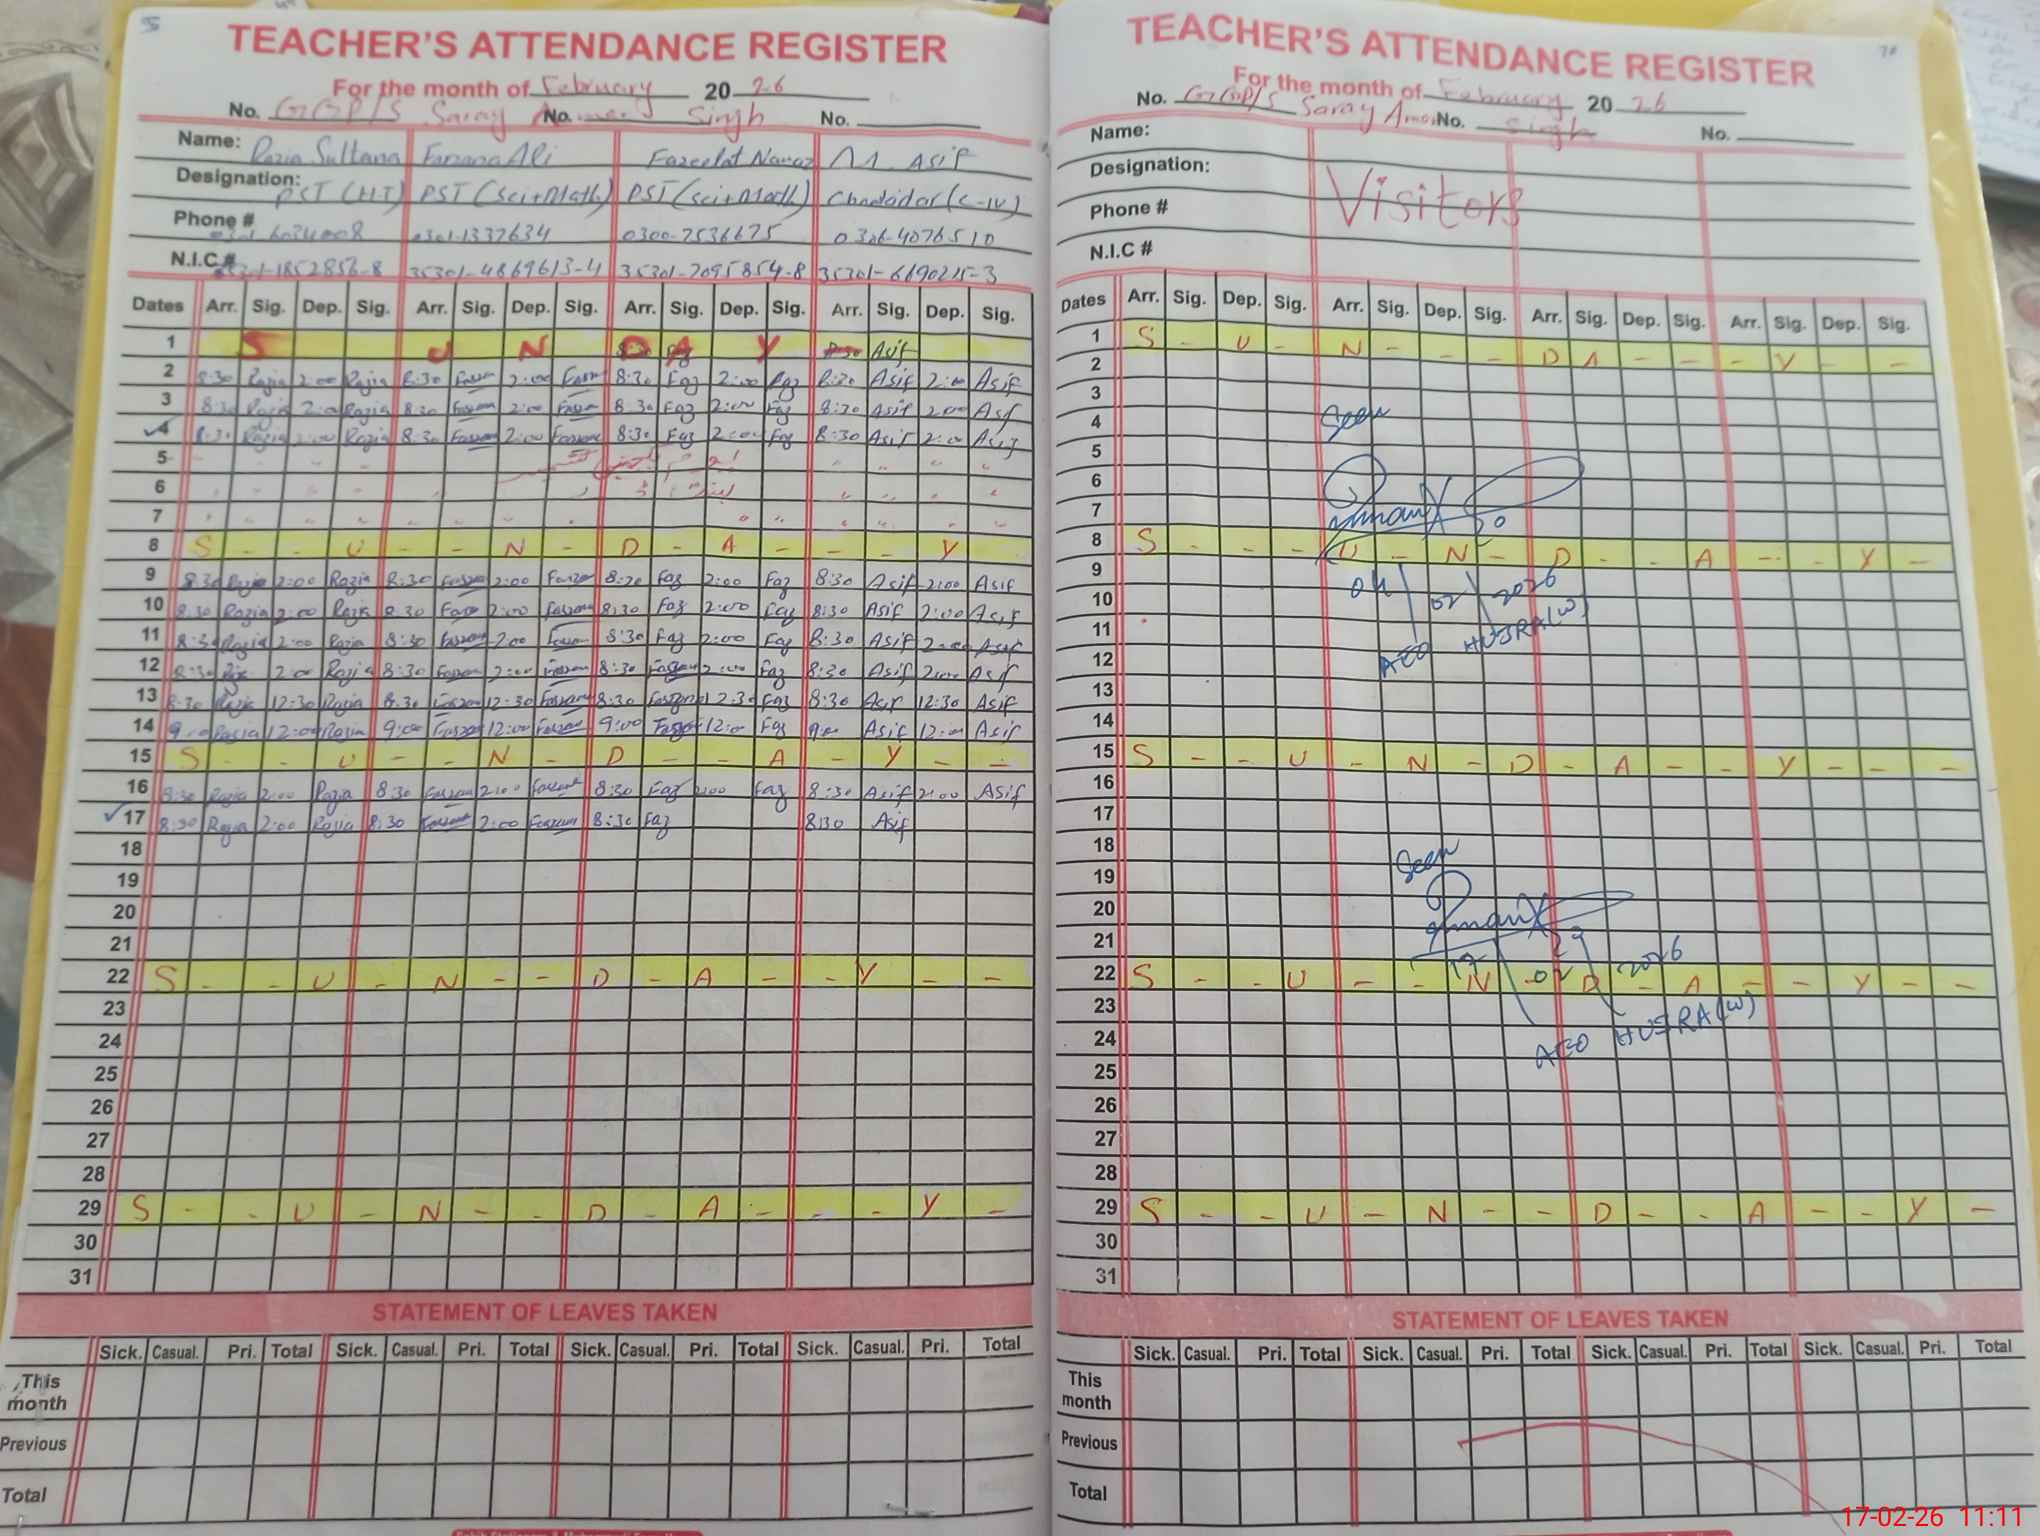 TEACHER'S ATTENDANCE REGISTER
For the month of February 20 26
No. GGP/S Saray No. Singh No.
Name: Razia Sultana Farzana Ali Fazeelat Nawaz M. Asif
Designation: PST (HT) PST (Sci+Math) PST (Sci+Math) (C-IV)
Phone # 0301-1337634 0300-7536675 0306-4076510
N.I.C # 35301-1852856-8 35301-4869613-4 35301-7095854-8 35301-6690215-3
Dates Arr. Sig. Dep. Sig. Arr. Sig. Dep. Sig. Arr. Sig. Dep. Sig. Arr. Sig. Dep. Sig.
1 S U N D A Y Asif
2 8:30 Razia 2:00 Razia 8:30 Farzan 2:00 Farzan 8:30 Faz 2:00 Faz 8:30 Asif 2:00 Asif
3 8:30 Razia 2:00 Razia 8:30 Farzan 2:00 Farzan 8:30 Faz 2:00 Faz 8:30 Asif 2:00 Asif
4 8:30 Razia 2:00 Razia 8:30 Farzan 2:00 Farzan 8:30 Faz 2:00 Faz 8:30 Asif 2:00 Asif
5
6
7
8 S - - U - - N - D - A - - - Y
9 8:30 Razia 2:00 Razia 8:30 Farzan 2:00 Farzan 8:30 Faz 2:00 Faz 8:30 Asif 2:00 Asif
10 8:30 Razia 2:00 Razia 8:30 Farzan 2:00 Farzan 8:30 Faz 2:00 Faz 8:30 Asif 2:00 Asif
11 8:30 Razia 2:00 Razia 8:30 Farzan 2:00 Farzan 8:30 Faz 2:00 Faz 8:30 Asif 2:00 Asif
12 8:30 2:00 Razia 8:30 Farzan 2:00 Farzan 8:30 2:00 Faz 8:30 Asif 2:00 Asif
13 8:30 Razia 12:30 Razia 8:30 Farzan 12:30 Farzan 8:30 12:30 Faz 8:30 Asif 12:30 Asif
14 9:00 Razia 12:00 Razia 9:00 Farzan 12:00 Farzan 9:00 12:00 Faz 9:00 Asif 12:00 Asif
15 S - - U - - N - D - - A - Y - -
16 8:30 Razia 2:00 Razia 8:30 Farzan 2:00 Farzan 8:30 Faz 2:00 Faz 8:30 Asif 2:00 Asif
17 8:30 Razia 2:00 Razia 8:30 Farzan 2:00 Farzan 8:30 Faz 8:30 Asif
18
19
20
21
22 S - - U - N - - D - A - - Y - -
23
24
25
26
27
28
29 S - - U - N - - D - A - - - Y -
30
31
STATEMENT OF LEAVES TAKEN
Sick. Casual. Pri. Total Sick. Casual. Pri. Total Sick. Casual. Pri. Total Sick. Casual. Pri. Total
This month
Previous
Total
TEACHER'S ATTENDANCE REGISTER
For the month of February 20 26
No. GGP/S Saray No. Singh No.
Name:
Designation:
Visitors
Phone #
N.I.C #
Dates Arr. Sig. Dep. Sig. Arr. Sig. Dep. Sig. Arr. Sig. Dep. Sig. Arr. Sig. Dep. Sig.
1 S - U - N - - - D A - - - Y - -
2
3
4 Seen
5
6
7
8 S - - - U - N - D - - A - - Y -
9 04 02 2026
10
11 AEO HUJRA(W)
12
13
14
15 S - - U - N - D - A - - Y - - -
16
17
18 Seen
19
20
21
22 S - - U - - N - D - A - - Y - -
17 02 2026
23
24 AEO HUJRA(W)
25
26
27
28
29 S - - U - N - - D - - A - - Y -
30
31
STATEMENT OF LEAVES TAKEN
Sick. Casual. Pri. Total Sick. Casual. Pri. Total Sick. Casual. Pri. Total Sick. Casual. Pri. Total
This month
Previous
Total
17-02-26 11:11